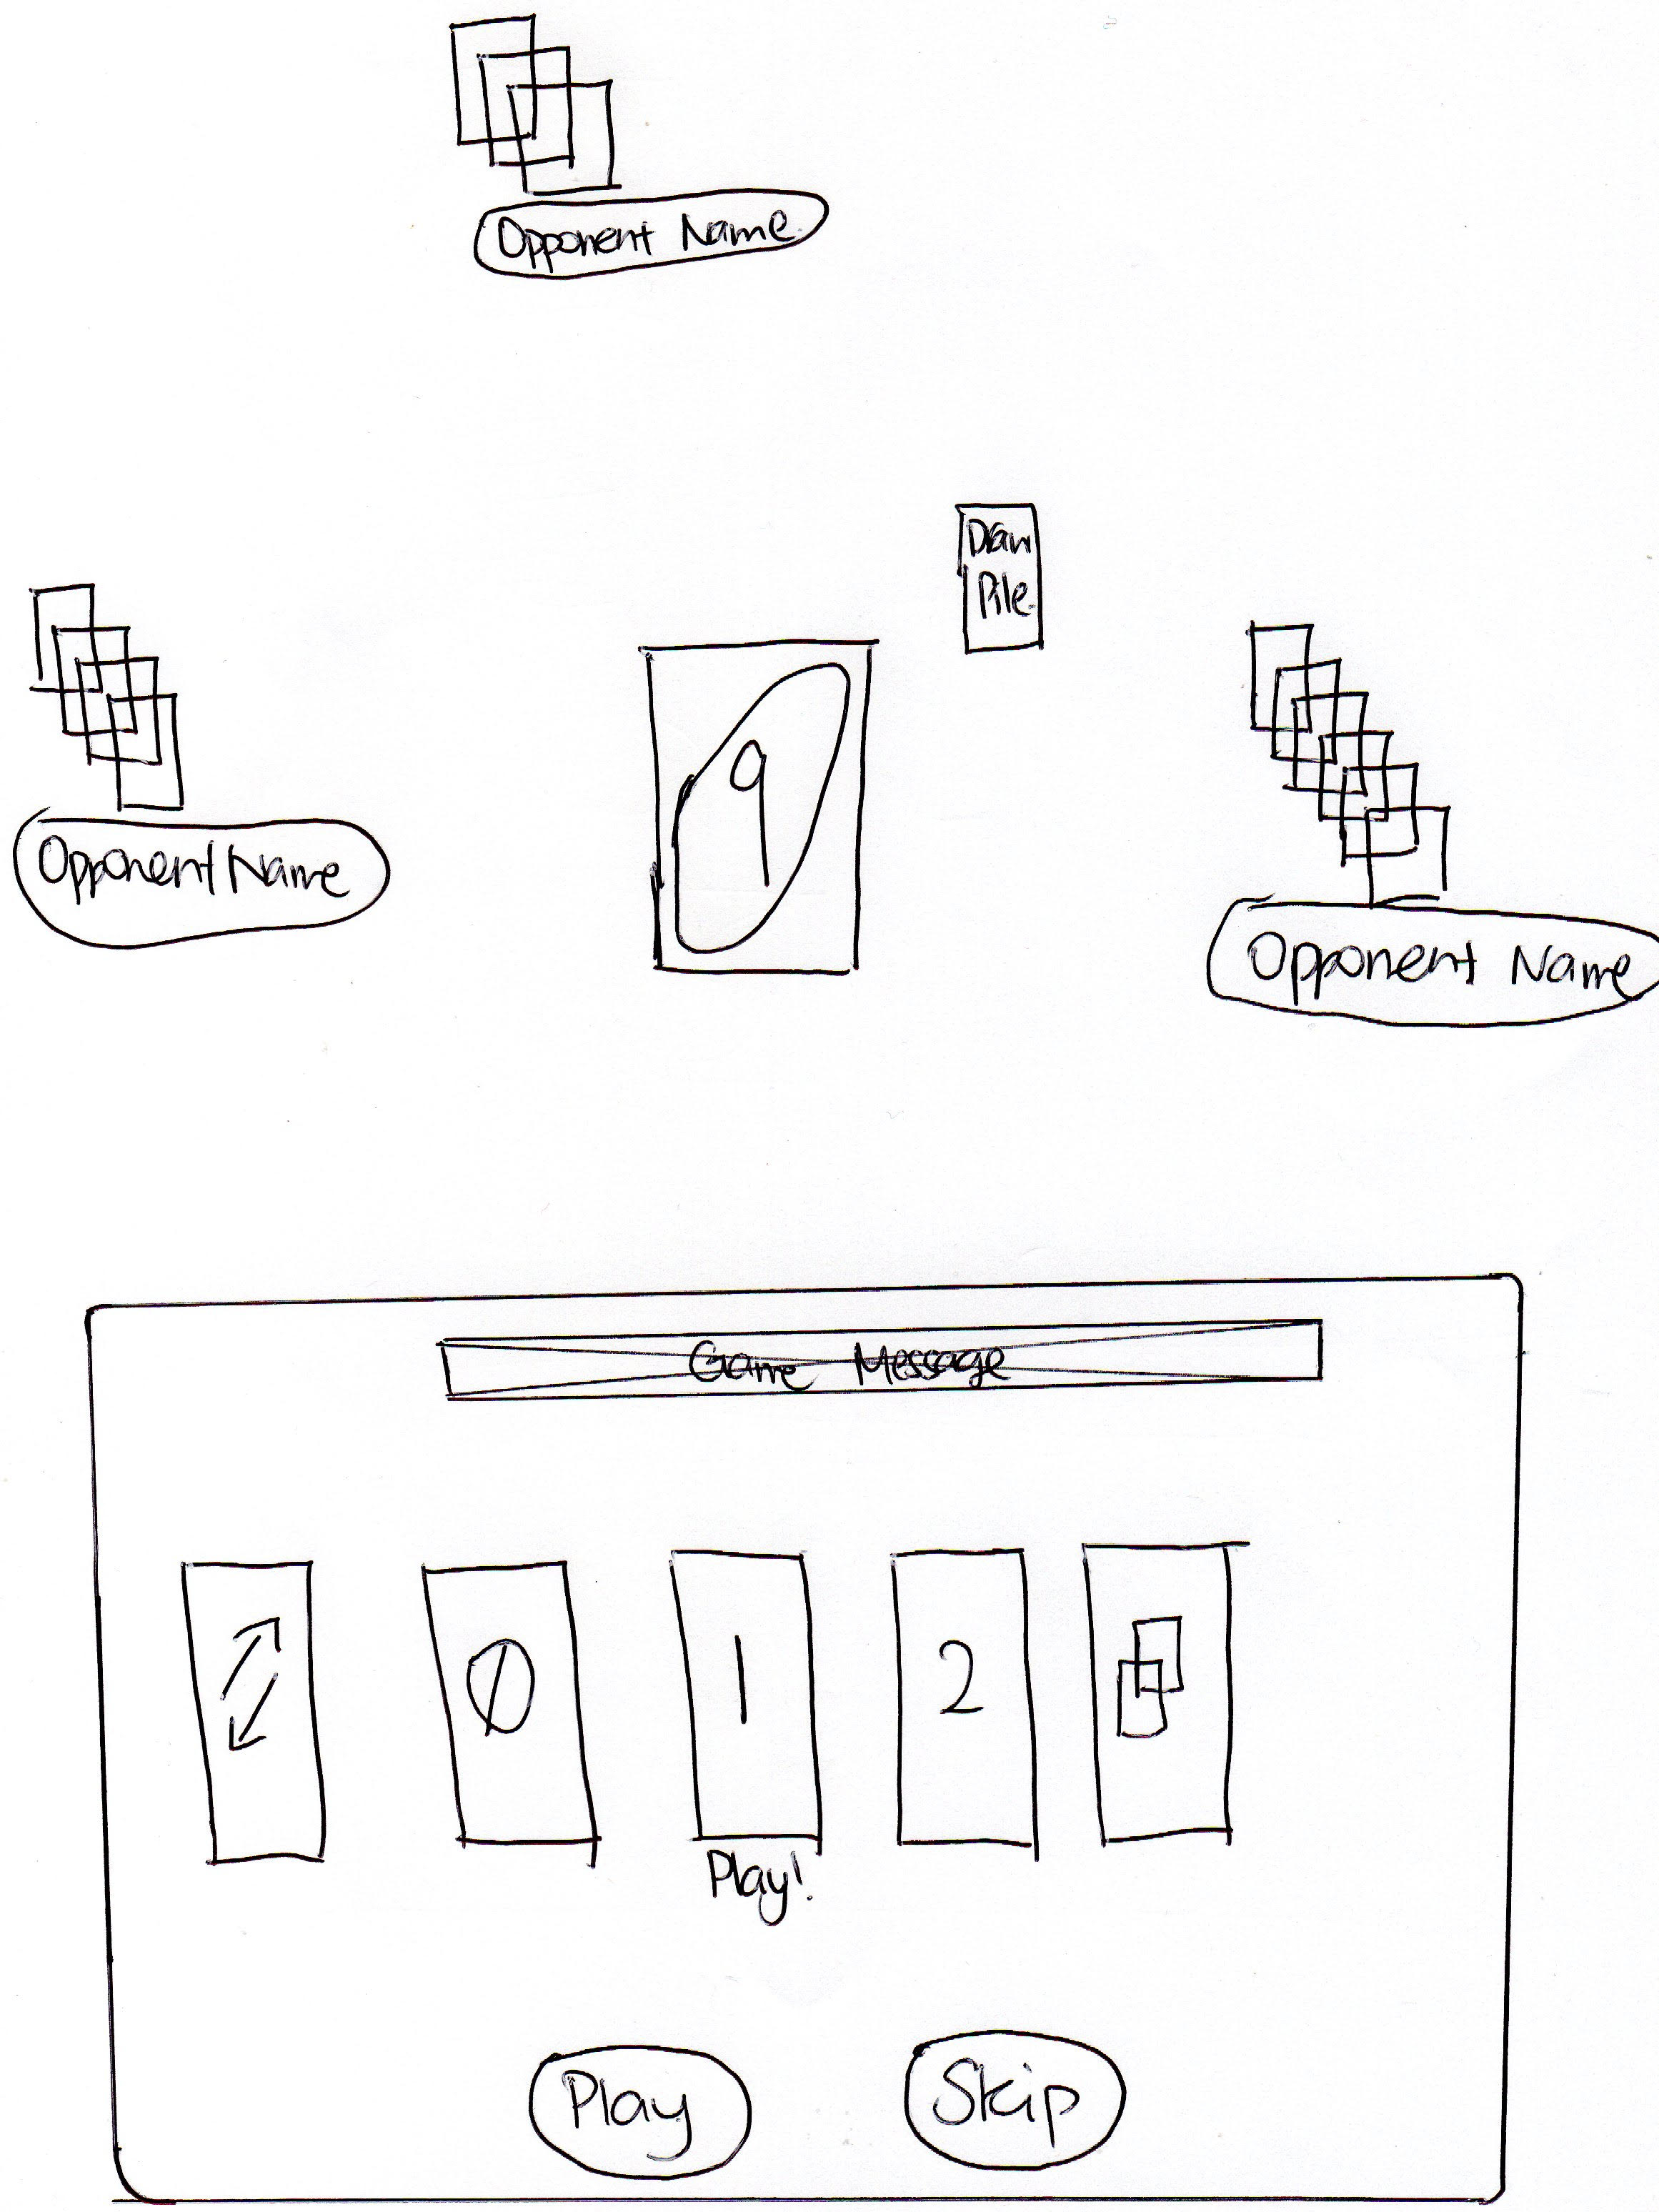 Opponent Name
Draw
Pile
Opponent Name
9
Opponent Name
Game Message
0
1
2
Play!
Play
Skip